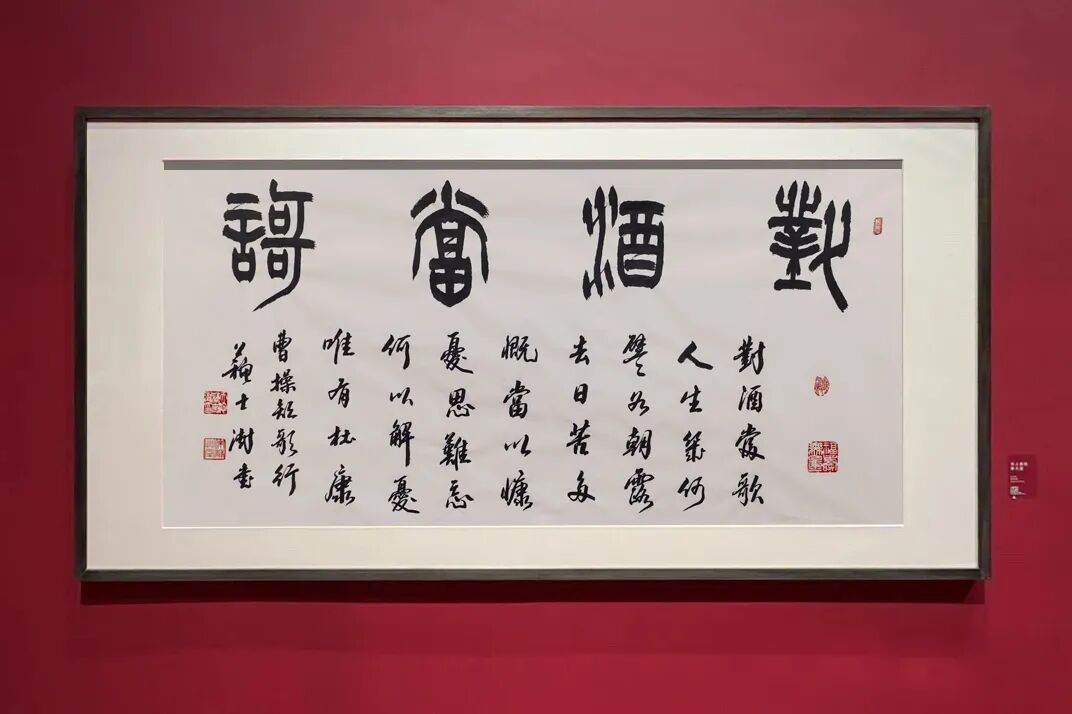 對酒當謌
對酒當歌
人生幾何
譬如朝露
去日苦多
慨當以慷
憂思難忘
何以解憂
唯有杜康
曹操短歌行
蘇士澍書